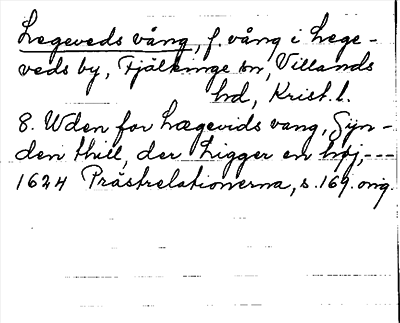 Legeveds vång, f. vång i Lege-
veds by, Fjälkinge sn, Villands
hd, Krist. l.
8. Uden for Lægevids vang, Syn-
den thill, der Ligger en høj,---
1624 Prästrelationerna, s. 169. orig.